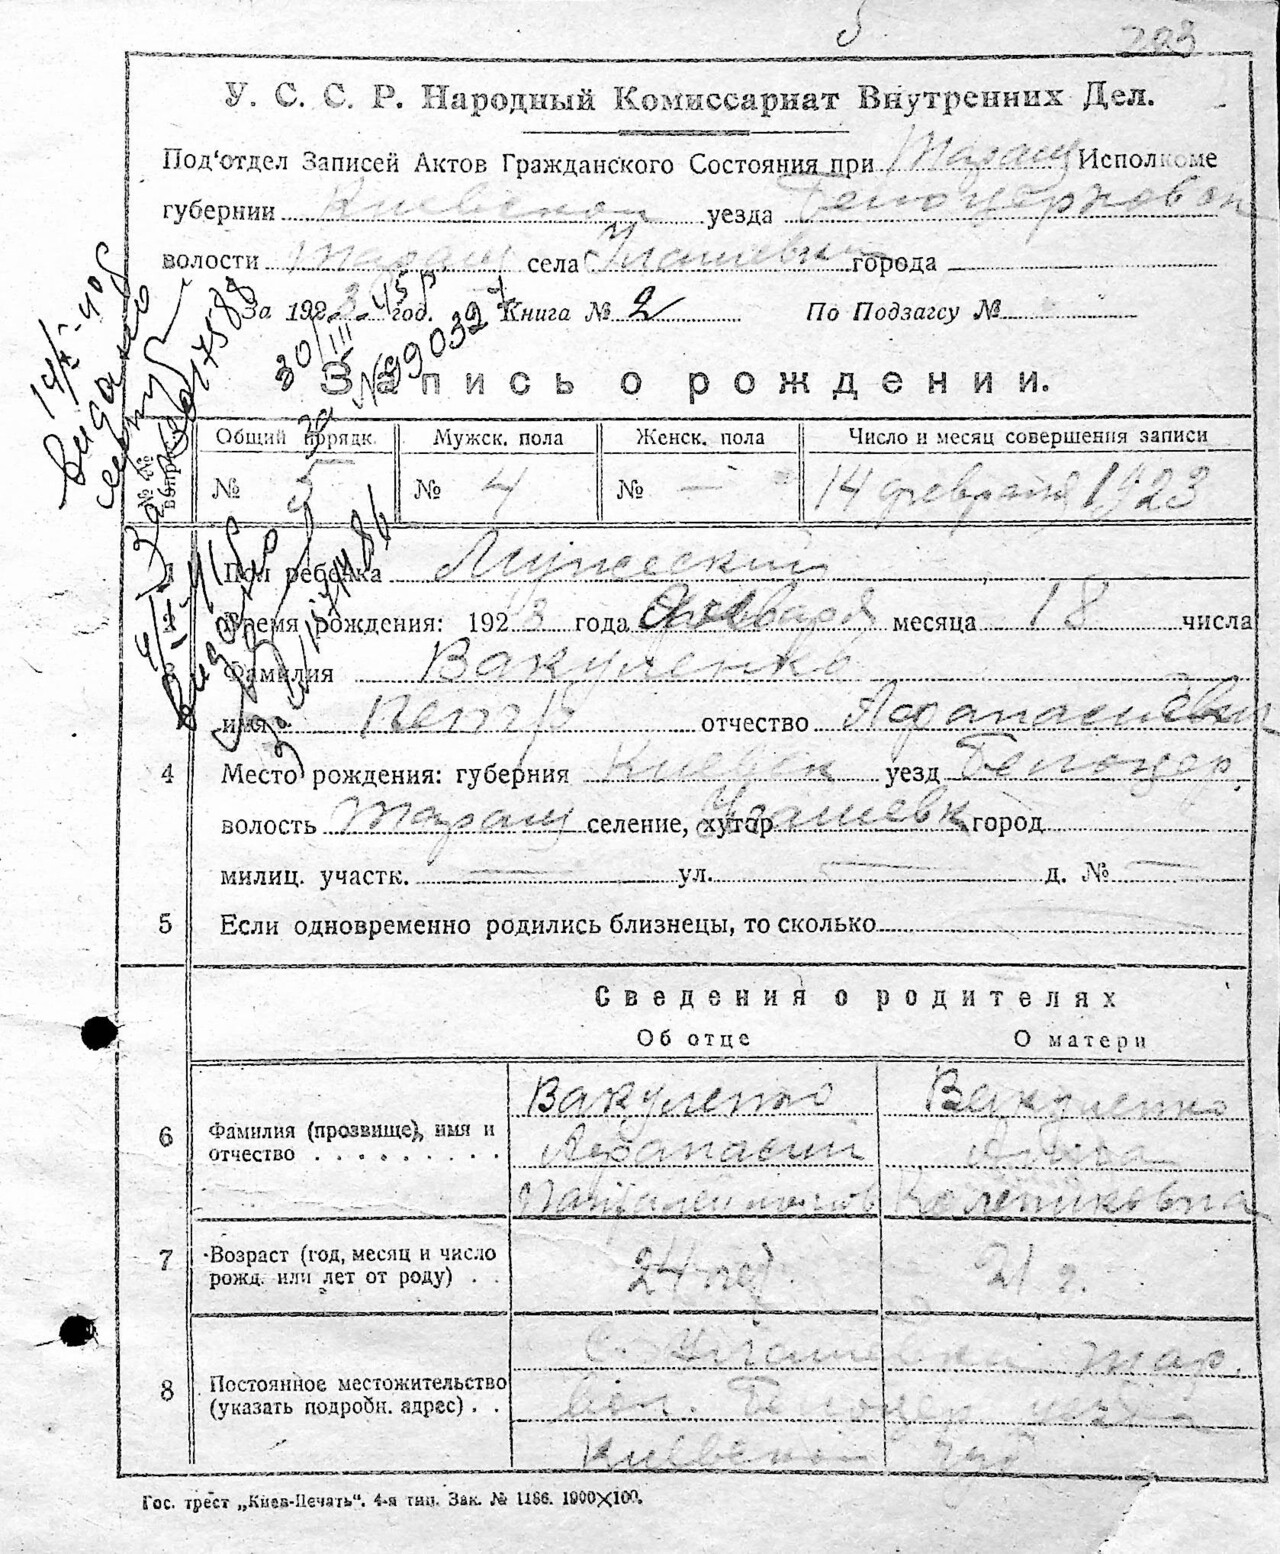 203
У. С. С. Р. Народный Комиссариат Внутренних Дел.
Под'отдел Записей Актов Гражданского Состояния при Таращ Исполкоме
губернии Киевской уезда Белоцерковск
волости Таращ села города
За 1923 год. Книга № 2 По Подзагсу №
30/III-45 р
№ 099032
Запись о рождении.
Общий порядк. Мужск. пола Женск. пола Число и месяц совершения записи
№ 5 № 4 № — 14 февраля 1923
1 Пол ребенка Мужеский
2 Время рождения: 1923 года месяца 18 числа
3 Фамилия Вакуленко
имя Петр отчество Афанасиевич
4 Место рождения: губерния Киевск уезд Белоцер.
волость Таращ селение, хутор город
милиц. участк. — ул. — д. № —
5 Если одновременно родились близнецы, то сколько
Сведения о родителях
Об отце О матери
6 Фамилия (прозвище), имя и отчество
Вакуленко Вакуленко
Афанасий Анна
7 Возраст (год, месяц и число рожд. или лет от роду)
24 лет 21 г.
8 Постоянное местожительство (указать подробн. адрес)
С. Тар.
вол. Белоцер уезда
Киевской губ
Гос. трест „Киев-Печать". 4-я тип. Зак. № 1186. 1000×100.